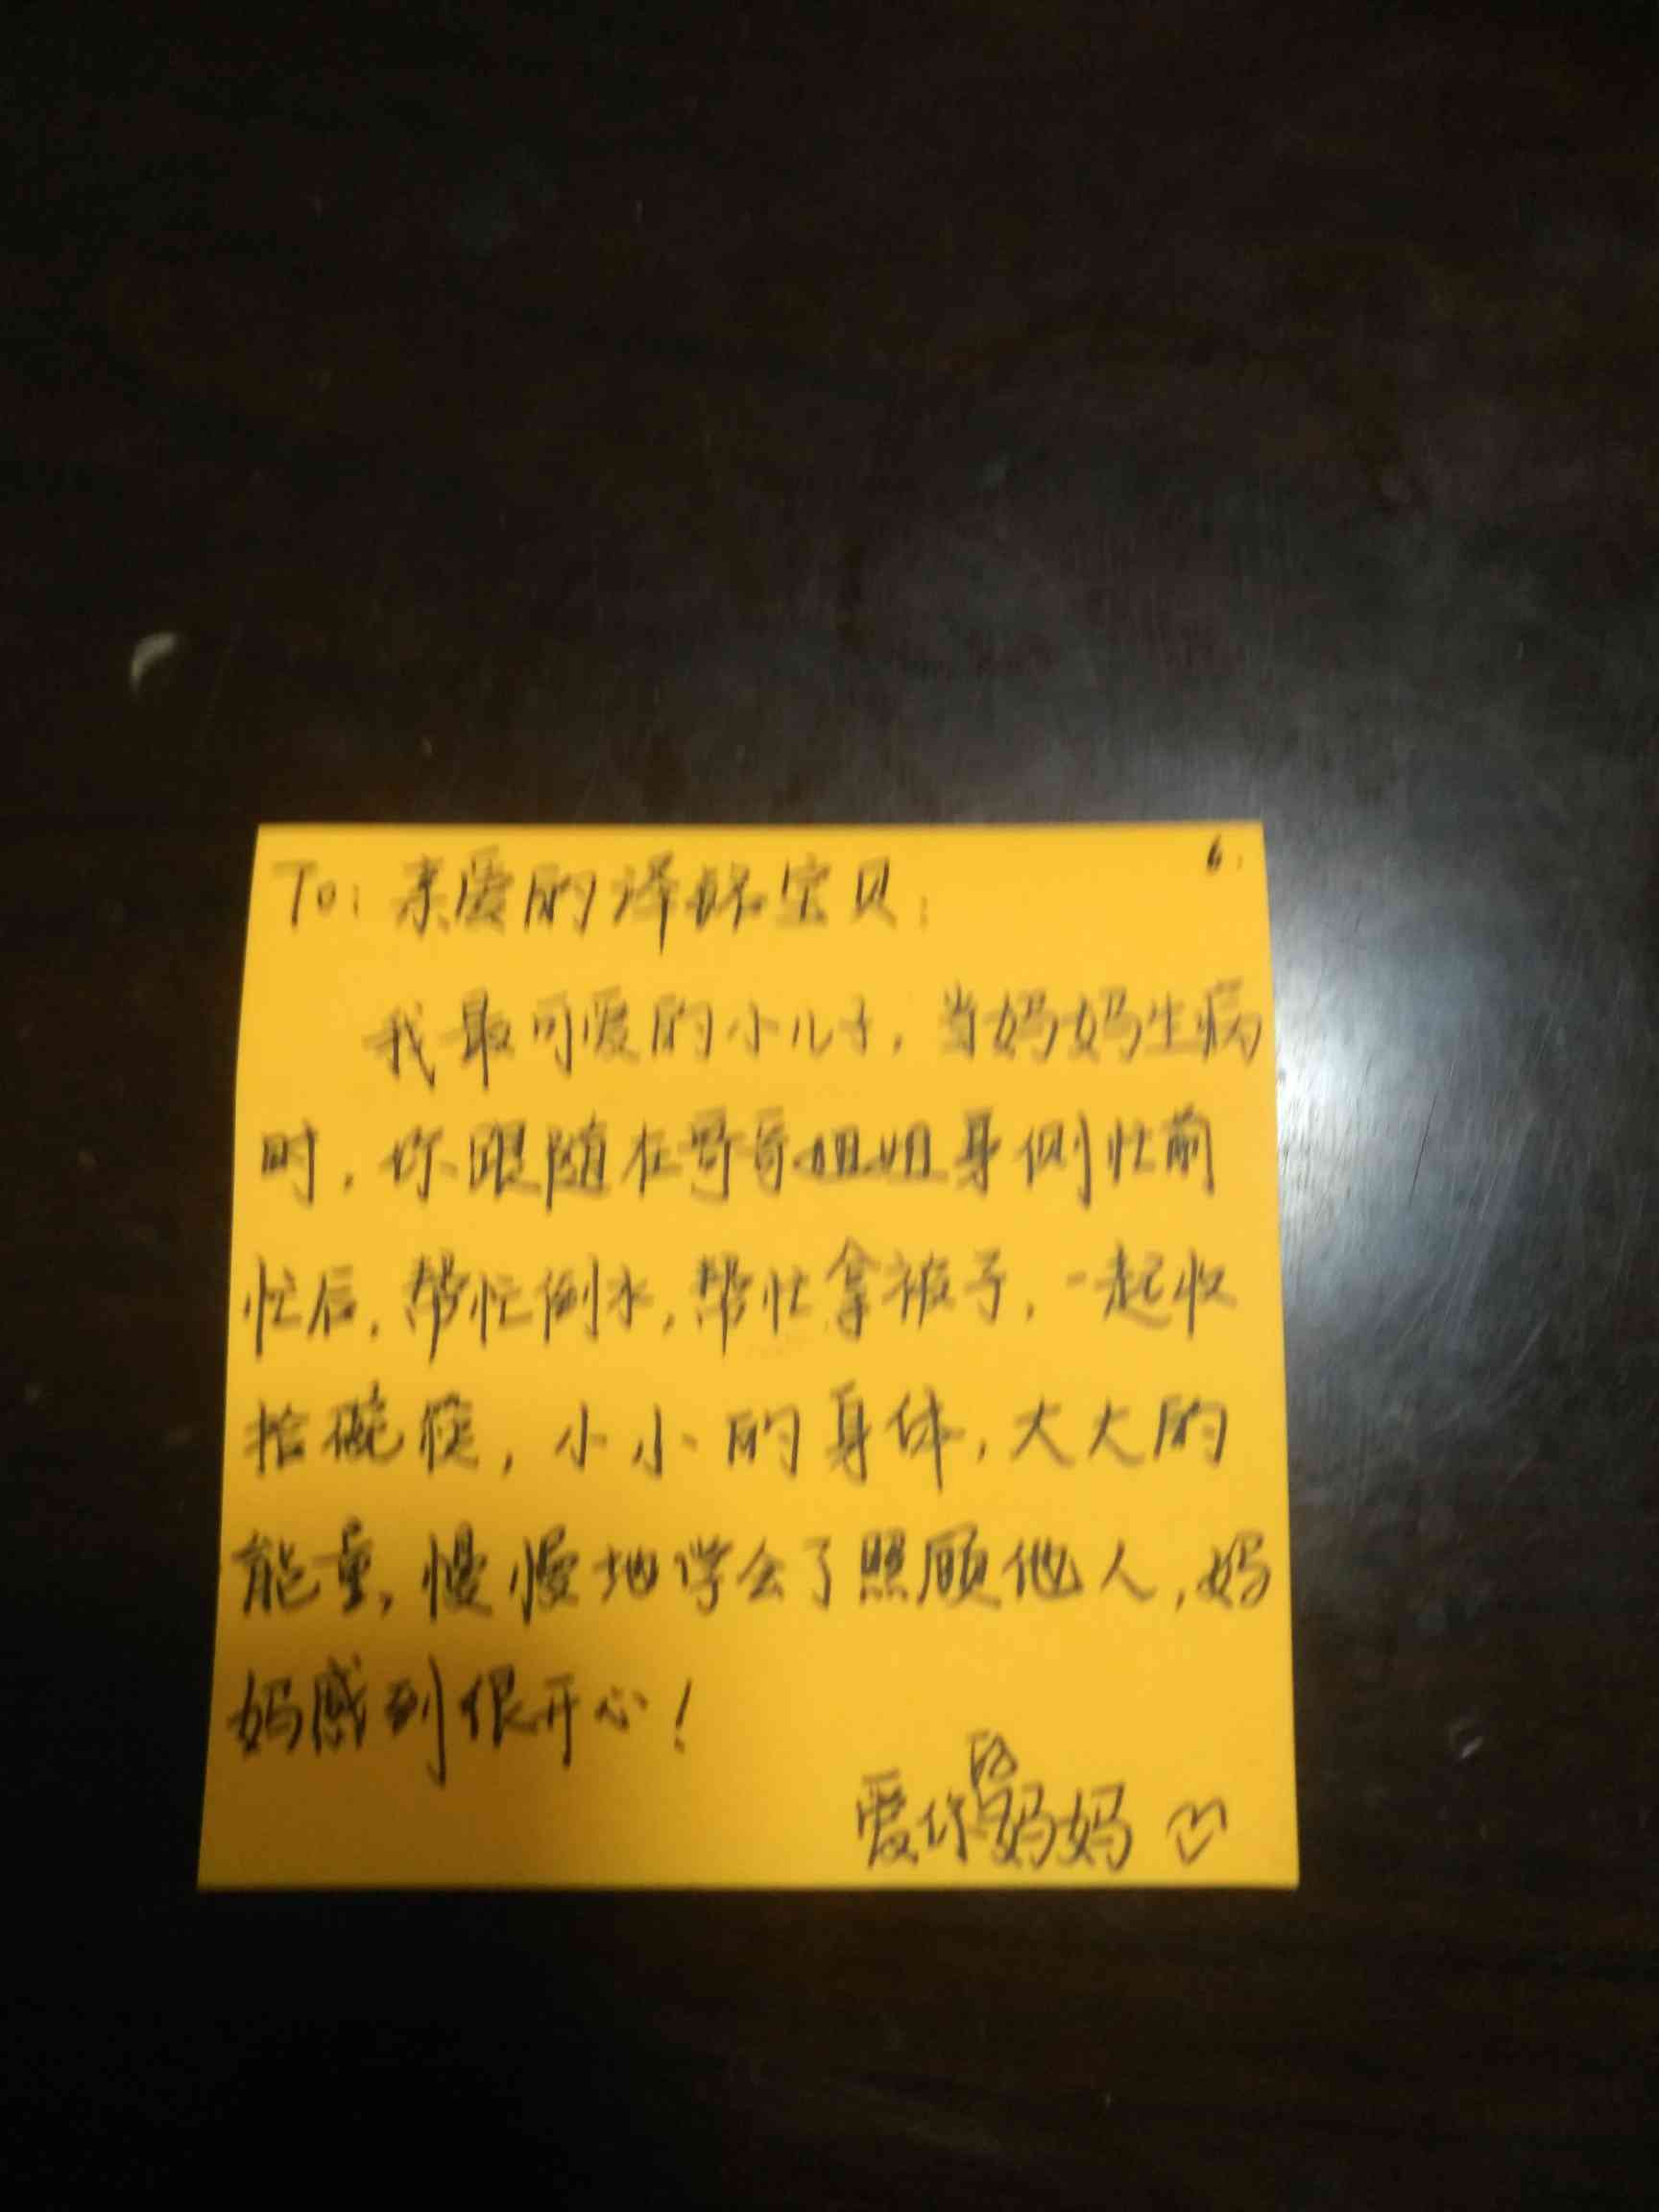 6.
To: 亲爱的泽宝贝:
我最可爱的小儿子,当妈妈生病
时,你跟随在哥哥姐姐身侧忙前
忙后,帮忙倒水,帮忙拿被子,一起收
拾碗筷,小小的身体,大大的
能量,慢慢地学会了照顾他人,妈
妈感到很开心!
爱你的妈妈♡